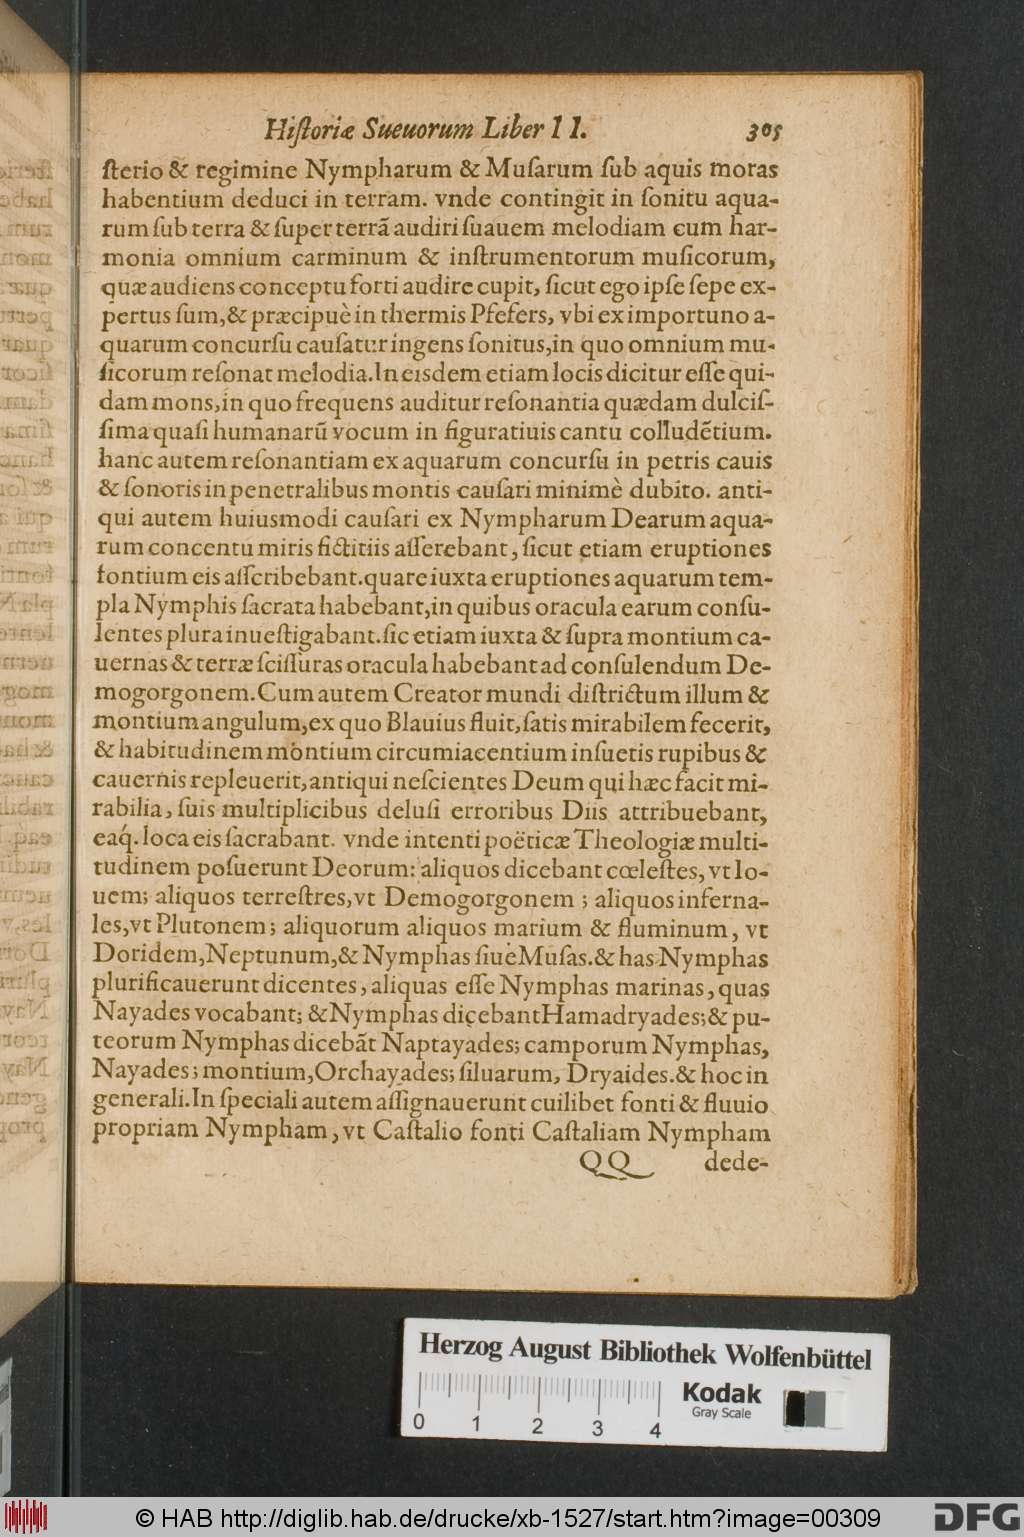 Hiſtoriæ Sueuorum Liber II. 305
ſterio & regimine Nympharum & Muſarum ſub aquis moras
habentium deduci in terram. vnde contingit in ſonitu aqua-
rum ſub terra & ſuper terrã audiri ſuauem melodiam cum har-
monia omnium carminum & inſtrumentorum muſicorum,
quæ audiens conceptu forti audire cupit, ſicut ego ipſe ſepe ex-
pertus ſum, & præcipuè in thermis Pfefers, vbi ex importuno a-
quarum concurſu cauſatur ingens ſonitus, in quo omnium mu-
ſicorum reſonat melodia. In eisdem etiam locis dicitur eſſe qui-
dam mons, in quo frequens auditur reſonantia quædam dulciſ-
ſima quaſi humanarũ vocum in figuratiuis cantu colludẽtium.
hanc autem reſonantiam ex aquarum concurſu in petris cauis
& ſonoris in penetralibus montis cauſari minimè dubito. anti-
qui autem huiusmodi cauſari ex Nympharum Dearum aqua-
rum concentu miris fictitiis aſſerebant, ſicut etiam eruptiones
fontium eis aſſcribebant. quare iuxta eruptiones aquarum tem-
pla Nymphis ſacrata habebant, in quibus oracula earum conſu-
lentes plura inueſtigabant. ſic etiam iuxta & ſupra montium ca-
uernas & terræ ſciſſuras oracula habebant ad conſulendum De-
mogorgonem. Cum autem Creator mundi diſtrictum illum &
montium angulum, ex quo Blauius fluit, ſatis mirabilem fecerit,
& habitudinem montium circumiacentium inſuetis rupibus &
cauernis repleuerit, antiqui neſcientes Deum qui hæc facit mi-
rabilia, ſuis multiplicibus deluſi erroribus Diis attribuebant,
eaq́. loca eis ſacrabant. vnde intenti poëticæ Theologiæ multi-
tudinem poſuerunt Deorum: aliquos dicebant cœleſtes, vt Io-
uem; aliquos terreſtres, vt Demogorgonem; aliquos inferna-
les, vt Plutonem; aliquorum aliquos marium & fluminum, vt
Doridem, Neptunum, & Nymphas ſiue Muſas. & has Nymphas
plurificauerunt dicentes, aliquas eſſe Nymphas marinas, quas
Nayades vocabant; & Nymphas dicebant Hamadryades; & pu-
teorum Nymphas dicebãt Naptayades; camporum Nymphas,
Nayades; montium, Orchayades; ſiluarum, Dryaides. & hoc in
generali. In ſpeciali autem aſſignauerunt cuilibet fonti & fluuio
propriam Nympham, vt Caſtalio fonti Caſtaliam Nympham
QQ dede-
Herzog August Bibliothek Wolfenbüttel
Kodak
Gray Scale
0 1 2 3 4
© HAB http://diglib.hab.de/drucke/xb-1527/start.htm?image=00309
DFG